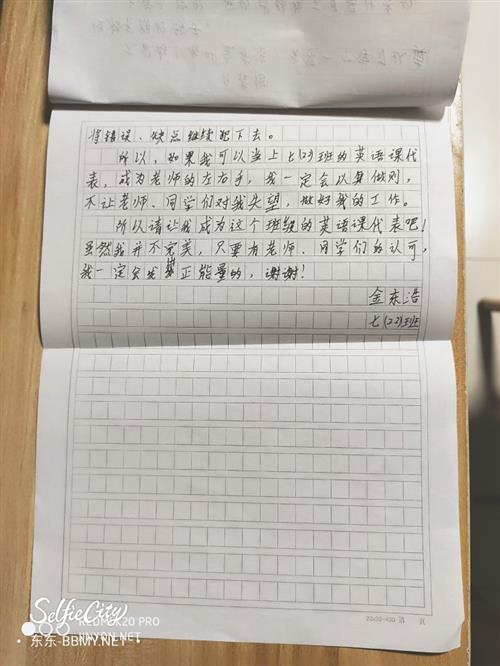 将错误、缺点继续犯下去。
所以,如果我可以当上七(23)班的英语课代
表,成为老师的左右手,我一定会以身做则,
不让老师、同学们对我失望,做好我的工作。
所以请让我成为这个班级的英语课代表吧!
虽然我并不完美,只要有老师、同学们的认可,
我一定会发 正能量的,谢谢!
金东浩
七(23)班
20×20=400 第 页
SelfieCity
REDMI K20 PRO
东东-BBNY.NET